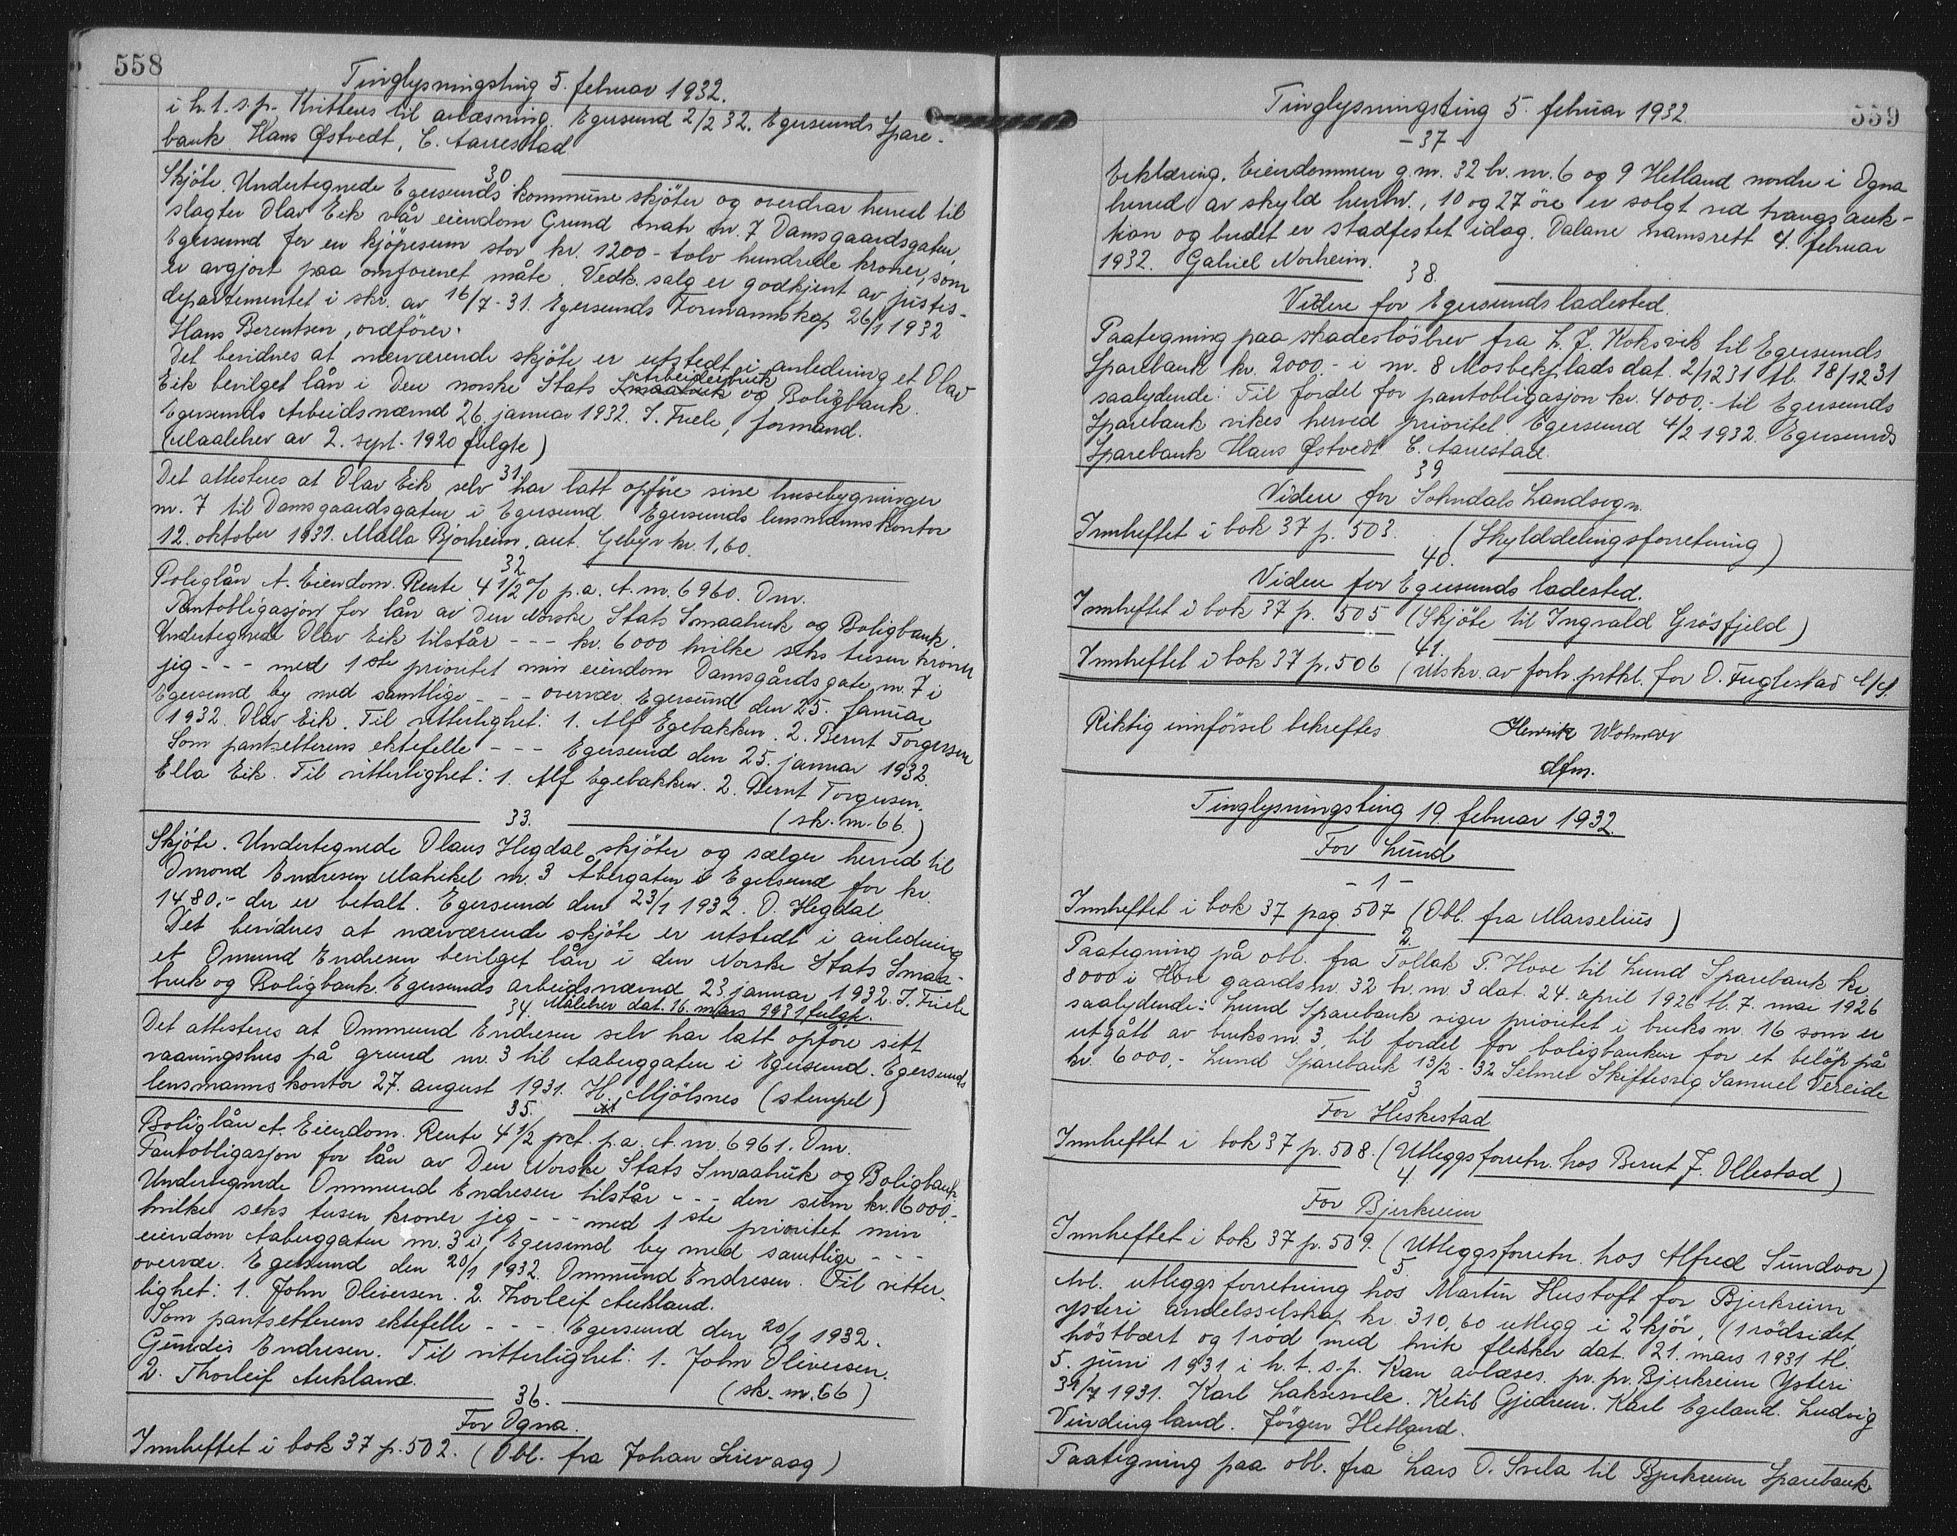 558
Tinglysningsting 5. februar 1932.
i h. t. s. p. Kvitteres til avlæsning. Egersund 2/2 32. Egersunds Spare-
bank Hans Østvedt, C. Aarrestad
30
Skjöte. Undertegnede Egersunds kommune skjöter og overdrar herved til
slagter Olav Eik vår eiendom Grund matr. nr. 7 Damsgaardsgaten,
Egersund for en kjöpesum stor kr. 1200 - tolv hundrede kroner, som
er avgjort paa omforenet måte. Vedk. salg er godkjent av justis-
departementet i skr. av 16/7-31. Egersunds Formannskap 26/1 1932
Hans Berentsen, ordförer.
Det bevidnes at nærværende skjöte er utstedt i anledning et Olav
Eik bevilget lån i Den norske Stats Smaabruk Arbeiderbruk og Boligbank.
Egersunds Arbeidsnævnd 26. januar 1932. J. Friele, formand.
(Maalebrev av 2. sept. 1920 fulgte)
31
Det attesteres at Olav Eik selv har latt opföre sine husebygninger
nr. 7 til Damsgaardsgaten i Egersund Egersunds lensmannskontor
12. oktober 1931. Malla Bjorheim, aut. Gebyr kr. 1,60.
32
Boliglån A. Eiendom. Rente 4 1/2 % p.a. A. nr. 6960. Dnr.
Pantobligasjon for lån av Den Norske Stats Smaabruk og Boligbank.
Undertegnede Olav Eik tilstår - - - kr. 6000 hvilke seks tusen kroner
jeg - - - med 1ste prioritet min eiendom Damsgårdsgate nr. 7 i
Egersund by med samtlige - - - overvær Egersund den 25. januar
1932. Olav Eik. Til vitterlighet: 1. Alf Egebakken. 2. Bernt Torgersen
Som pantsetterens ektefelle - - - Egersund den 25. januar 1932
Ella Eik. Til vitterlighet: 1. Alf Egebakken. 2. Bernt Torgersen.
33. (sk. nr. 66.)
Skjöte. Undertegnede Olaus Hegdal skjöter og sælger herved til
Omond Endresen Matrikel nr. 3 Åbergaten i Egersund for kr.
1480.- der er betalt. Egersund den 23/1 1932. O. Hegdal
Det bevidnes at nærværende skjöte er utstedt i anledning
et Omund Endresen bevilget lån i den Norske Stats Smaa-
bruk og Boligbank. Egersunds arbeidsnævnd 23 januar 1932. J. Friele
34. Målebrev dat. 16. mars 1931 fulgte.
Det attesteres at Ommund Endresen selv har latt opfore sitt
vaaningshus på grund nr. 3 til Aaberggaten i Egersund. Egersunds
lensmannskontor 27. august 1931. H. Mjölsnes (stempel)
35.
Boliglån A. Eiendom. Rente 4 1/2 pct. p.a. A. nr. 6961. Dnr.
Pantobligasjon for lån av Den Norske Stats Smaabruk og Boligbank
Undertegnede Ommund Endresen tilstår - - - den sum kr. 6000.-
hvilke seks tusen kroner jeg - - - med 1ste prioritet min
eiendom Aaberggaten nr. 3 i Egersund by med samtlige - - -
overvær. Egersund den 20/1 1932. Ommund Endresen. Til vitter-
lighet: 1. John Oliversen. 2. Thorleif Aukland.
Som pantsetterens ektefelle - - - Egersund den 20/1 1932.
Gundis Endresen. Til vitterlighet: 1. John Oliversen.
2. Thorleif Aukland. (sk. nr. 66)
36.
For Ogna.
Innheftet i bok 37 p. 502. (Obl. fra Johan Sirevaag)
559
Tinglysningsting 5. februar 1932
- 37 -
Erklæring. Eiendommen g.nr. 32 br. nr. 6 og 9 Hetland nordre i Ogna
herred av skyld henhv., 10 og 27 öre er solgt ved tvangsauk-
tion og budet er stadfestet idag. Dalane namsrett 4. februar
1932. Gabriel Norheim.
38.
Videre for Egersunds ladested.
Paategning paa skadeslösbrev fra L. J. Koksvik til Egersunds
Sparebank kr. 2000.- i nr. 8 Mosbekplads dat. 2/12 31 tl. 18/12 31
saalydende: Til fordel for pantobligasjon kr. 4000.- til Egersunds
Sparebank vikes herved prioritet. Egersund 4/2 1932. Egersunds
Sparebank Hans Østvedt C. Aarrestad.
39
Videre for Sokndals Landsogn.
Innheftet i bok 37 p. 503. (Skylddelingsforretning)
40.
Videre for Egersunds ladested.
Innheftet i bok 37 p. 505 (Skjöte til Ingvald Grösfjeld)
41.
Innheftet i bok 37 p. 506 (utskr. av forh. prtkl. for O. Fuglestad
Riktig innförsel bekreftes Henrik
dfm.
Tinglysningsting 19. februar 1932.
For Lund
- 1 -
Innheftet i bok 37 pag. 507 (Obl. fra Marselius)
2.
Paategning på obl. fra Tollak P. Hove til Lund Sparebank kr.
8000 i Hove gaardsnr. 32 br. nr. 3 dat. 24. april 1926 tl. 7. mai 1926
saalydende: Lund Sparebank viger prioritet i bruksnr. 16 som er
utgått av bruksnr. 3, til fordel for boligbanken for et belöp på
kr. 6000,- Lund Sparebank 13/2 - 32 Selmer Skiftesvig Samuel Vereide
3
For Heskestad
Innheftet i bok 37 p. 508. (Utleggsforretn. hos Bernt J. Ollestad)
4
For Bjerkreim
Innheftet i bok 37 p. 509. (Utleggsforretn. hos Alfred Sundvor)
5
Avl. utleggsforretning hos Martin Hustoft for Bjerkreim
Ysteri andelsselskap kr. 310,60 utlegg i 2 kjör, (1 rödsidet,
höstbært og 1 rod med hvite flekker dat. 21. mars 1931 tl.
5. juni 1931 i h. t. s. p. Kan avlæses. pr. pr. Bjerkreim Ysteri
31/7 1931. Karl Laksesvele. Ketil Gjedrem. Karl Egeland. Ludvig
Vindingland. Jörgen Hetland.
6
Paategning paa obl. fra Lars O. Svela til Bjerkreim Sparebank